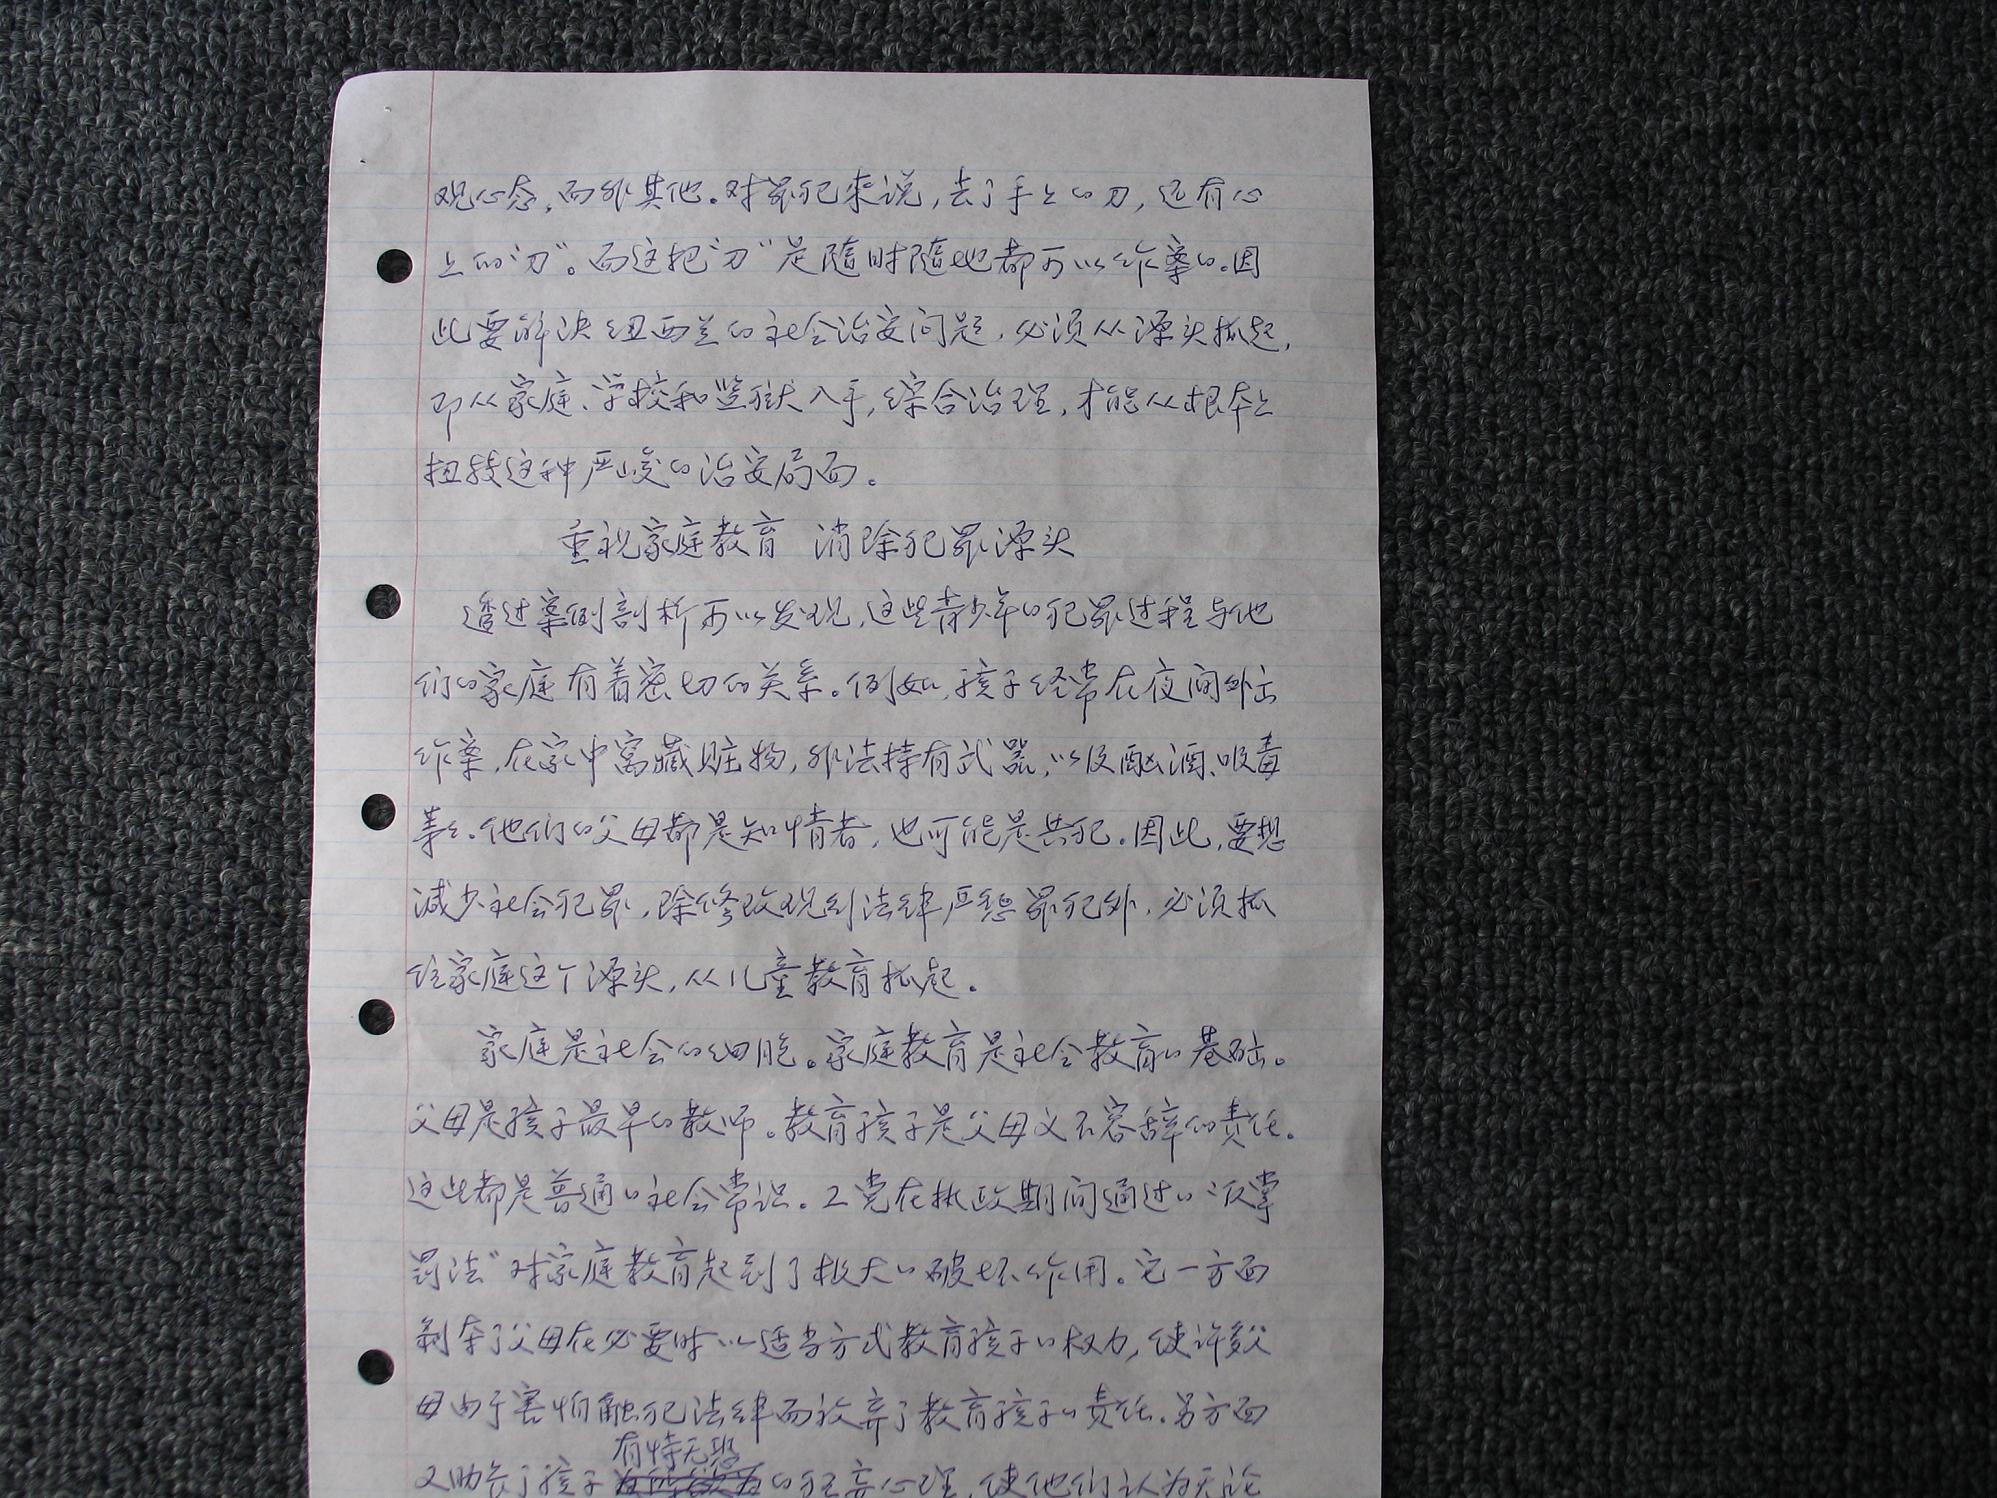 观心态，而非其他。对罪犯来说，去了手上的刀，还有心
上的“刀”。而这把“刀”是随时随地都可以作案的。因
此要解决纽西兰的社会治安问题，必须从源头抓起，
即从家庭、学校和监狱入手，综合治理，才能从根本上
扭转这种严峻的治安局面。
重视家庭教育 消除犯罪源头
透过案例剖析可以发现，这些青少年的犯罪过程与他
们的家庭有着密切的关系。例如，孩子经常在夜间外出
作案，在家中窝藏赃物，非法持有武器，以及酗酒、吸毒
等等。他们的父母都是知情者，也可能是共犯。因此，要想
减少社会犯罪，除修改现行法律严惩罪犯外，必须抓
住家庭这个源头，从儿童教育抓起。
家庭是社会的细胞。家庭教育是社会教育的基础。
父母是孩子最早的教师。教育孩子是父母义不容辞的责任。
这些都是普通的社会常识。工党在执政期间通过的“反掌
罚法”对家庭教育起到了极大的破坏作用。它一方面
剥夺了父母在必要时以适当方式教育孩子的权力，使许多父
母由于害怕触犯法律而放弃了教育孩子的责任。另方面
有恃无恐
又助长了孩子的狂妄心理，使他们认为无论